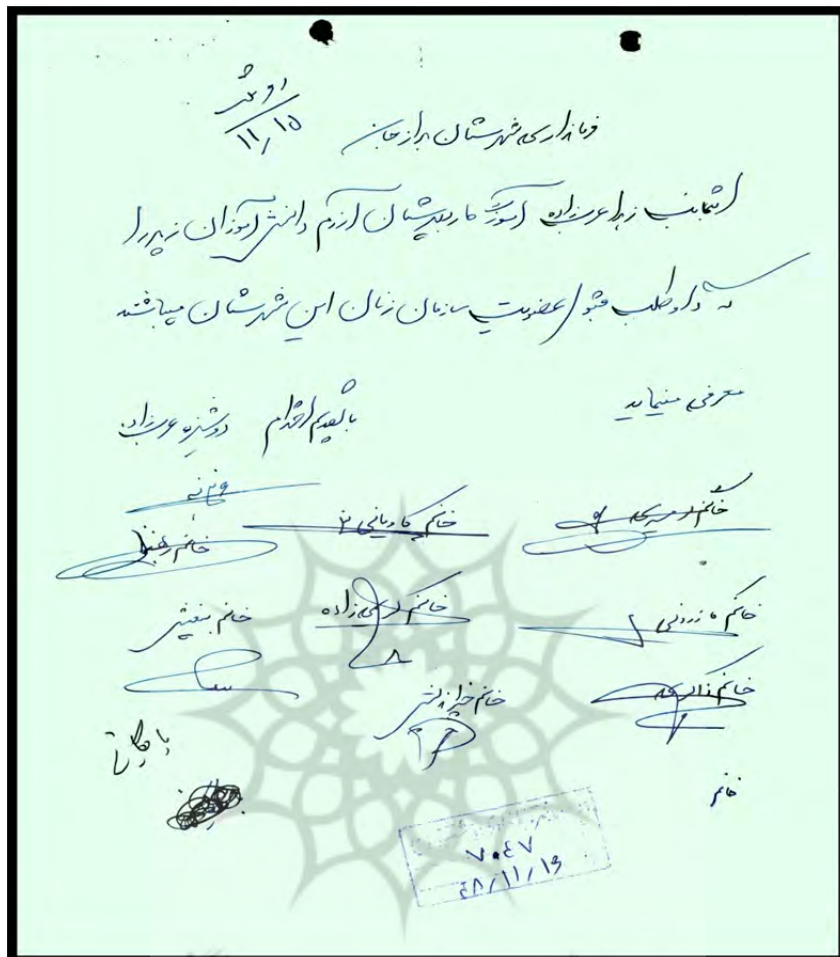 ۱۱/۱۵
فرمانداری شهرستان برازجان
اینجانب زهرا عرب‌زاده آموزگار دبیرستان آزرم دانش‌آموزان زیر را
که داوطلب قبول عضویت سازمان زنان این شهرستان میباشند
معرفی مینماید
با تقدیم احترام دوشیزه عرب‌زاده
خانم
خانم کاویانی
خانم
خانم کازرونی
خانم کریمی‌زاده
خانم بنفشی
خانم ذاکری
خانم
بایگانی
خانم
۷۰۴۷
۴۸/۱۱/۱۶